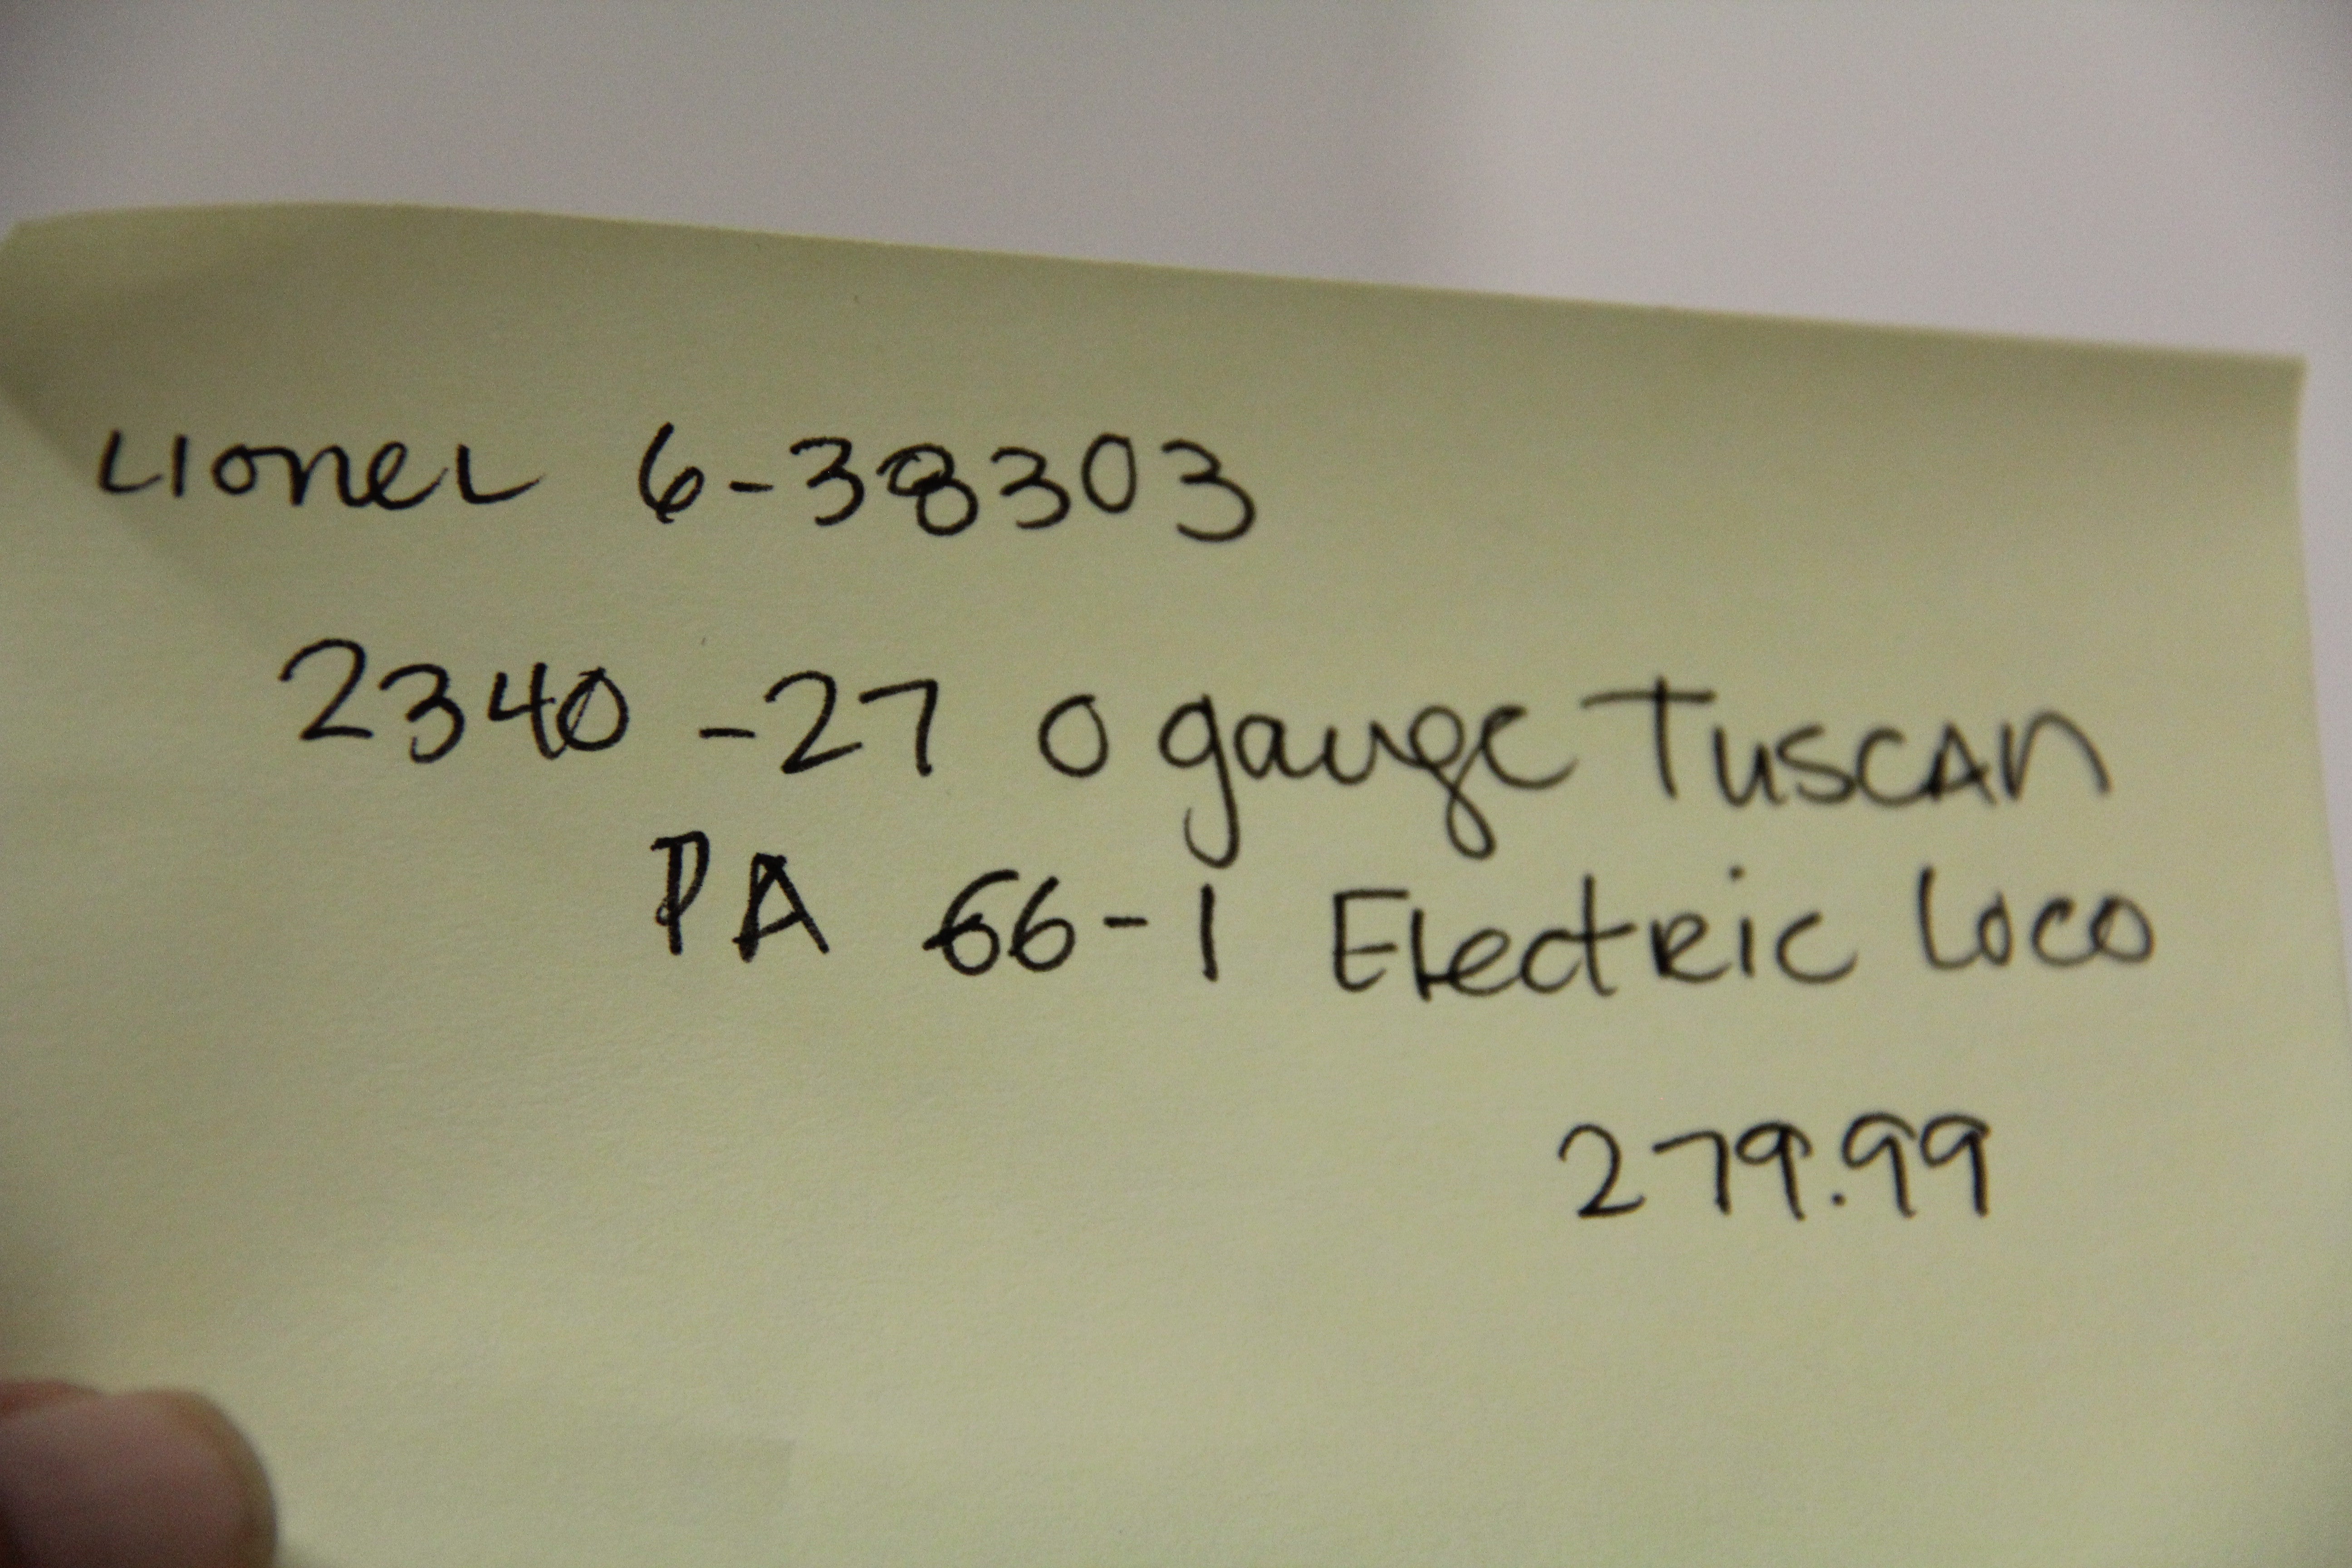 Lionel 6-38303
2340-27 O gauge Tuscan
PA GG-1 Electric Loco
279.99